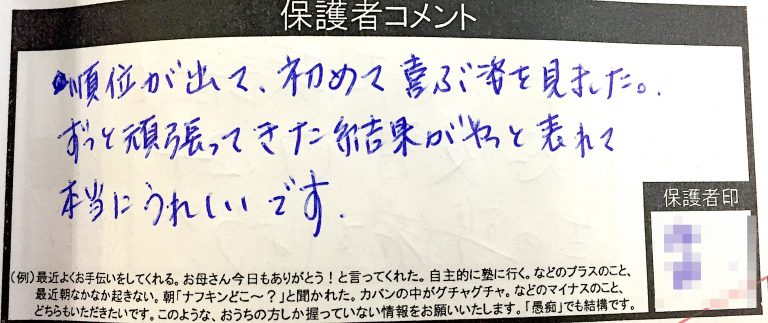 保護者コメント
順位が出て、初めて喜ぶ姿を見ました。
ずっと頑張ってきた結果がやっと表れて
本当にうれしいです。
保護者印
(例)最近よくお手伝いをしてくれる。お母さん今日もありがとう!と言ってくれた。自主的に塾に行く。などのプラスのこと、
最近朝なかなか起きない。朝「ナフキンどこ~?」と聞かれた。カバンの中がグチャグチャ。などのマイナスのこと、
どちらもいただきたいです。このような、おうちの方しか握っていない情報をお願いいたします。「愚痴」でも結構です。